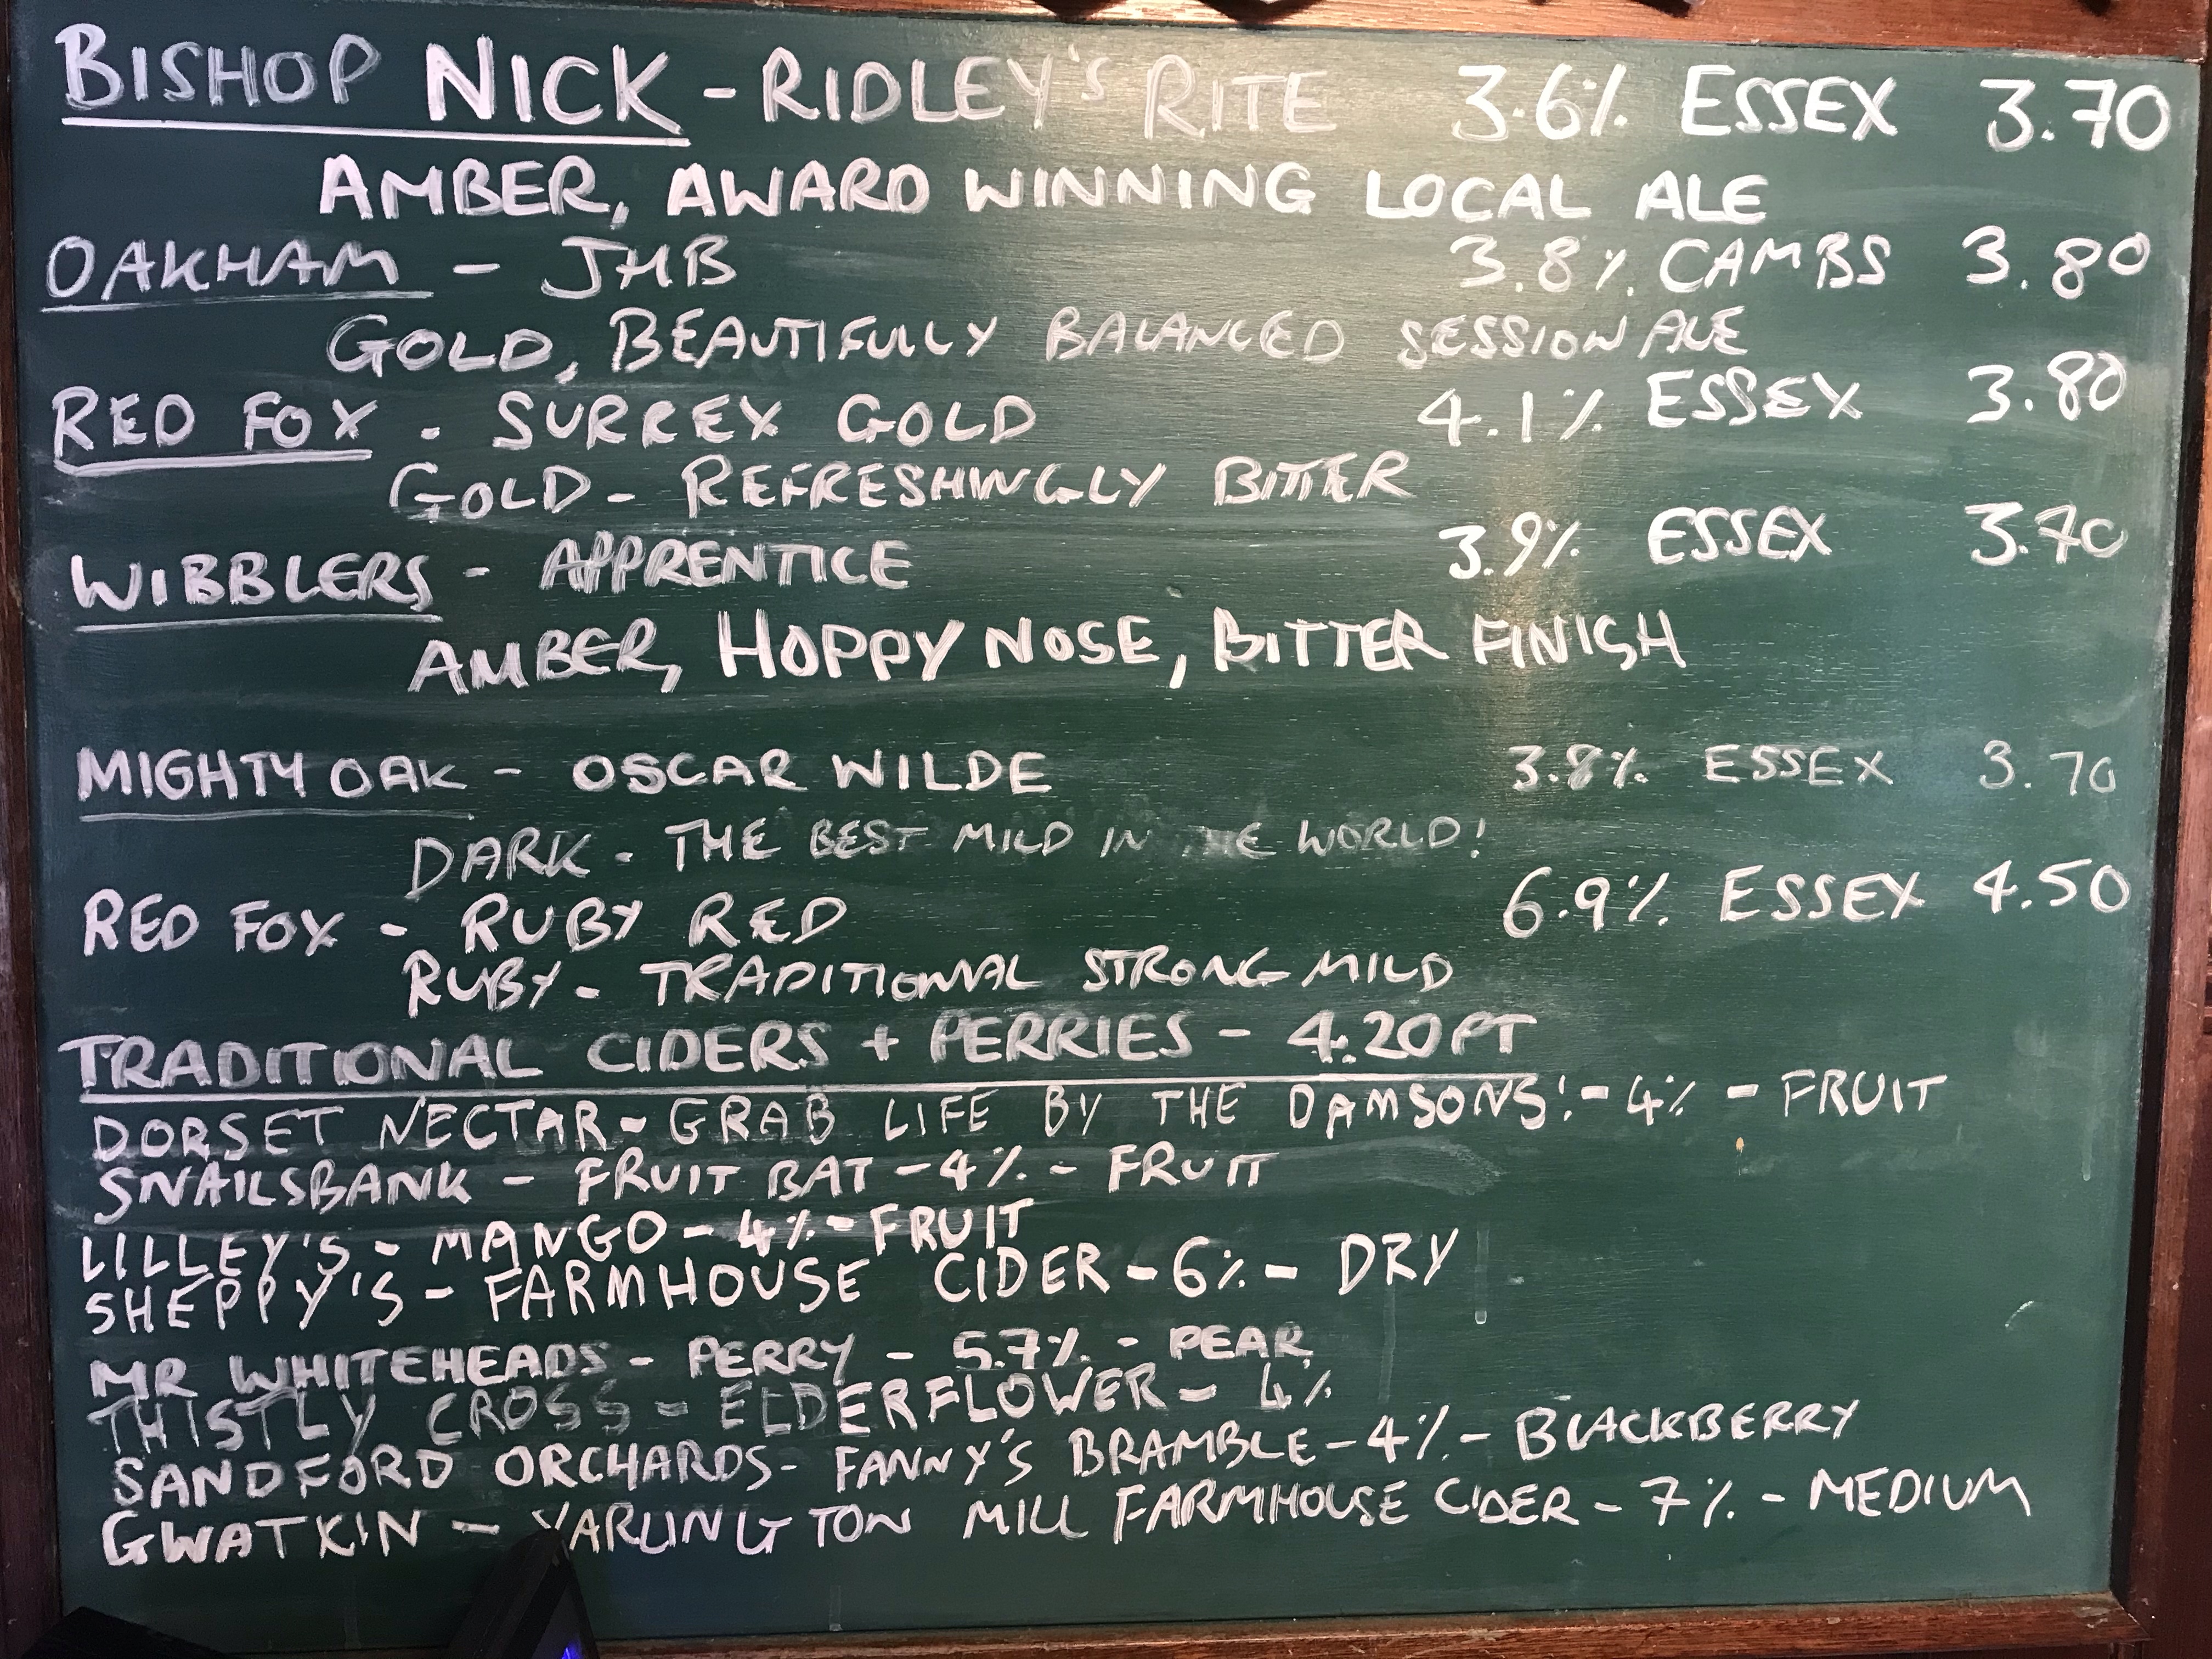 BISHOP NICK - RIDLEY'S RITE 3.6% ESSEX 3.70
AMBER, AWARD WINNING LOCAL ALE
OAKHAM - JHB 3.8% CAMBS 3.80
GOLD, BEAUTIFULLY BALANCED SESSION ALE
RED FOX - SURREX GOLD 4.1% ESSEX 3.80
GOLD - REFRESHINGLY BITTER
WIBBLERS - APPRENTICE 3.9% ESSEX 3.70
AMBER, HOPPY NOSE, BITTER FINISH
MIGHTY OAK - OSCAR WILDE 3.8% ESSEX 3.70
DARK - THE BEST MILD IN THE WORLD!
RED FOX - RUBY RED 6.9% ESSEX 4.50
RUBY - TRADITIONAL STRONG MILD
TRADITIONAL CIDERS + PERRIES - 4.20PT
DORSET NECTAR - GRAB LIFE BY THE DAMSONS! - 4% - FRUIT
SNAILSBANK - FRUIT BAT - 4% - FRUIT
LILLEY'S - MANGO - 4% - FRUIT
SHEPPY'S - FARMHOUSE CIDER - 6% - DRY
MR WHITEHEADS - PERRY - 5.7% - PEAR
THISTLY CROSS - ELDERFLOWER - 4%
SANDFORD ORCHARDS - FANNY'S BRAMBLE - 4% - BLACKBERRY
GWATKIN - YARLINGTON MILL FARMHOUSE CIDER - 7% - MEDIUM